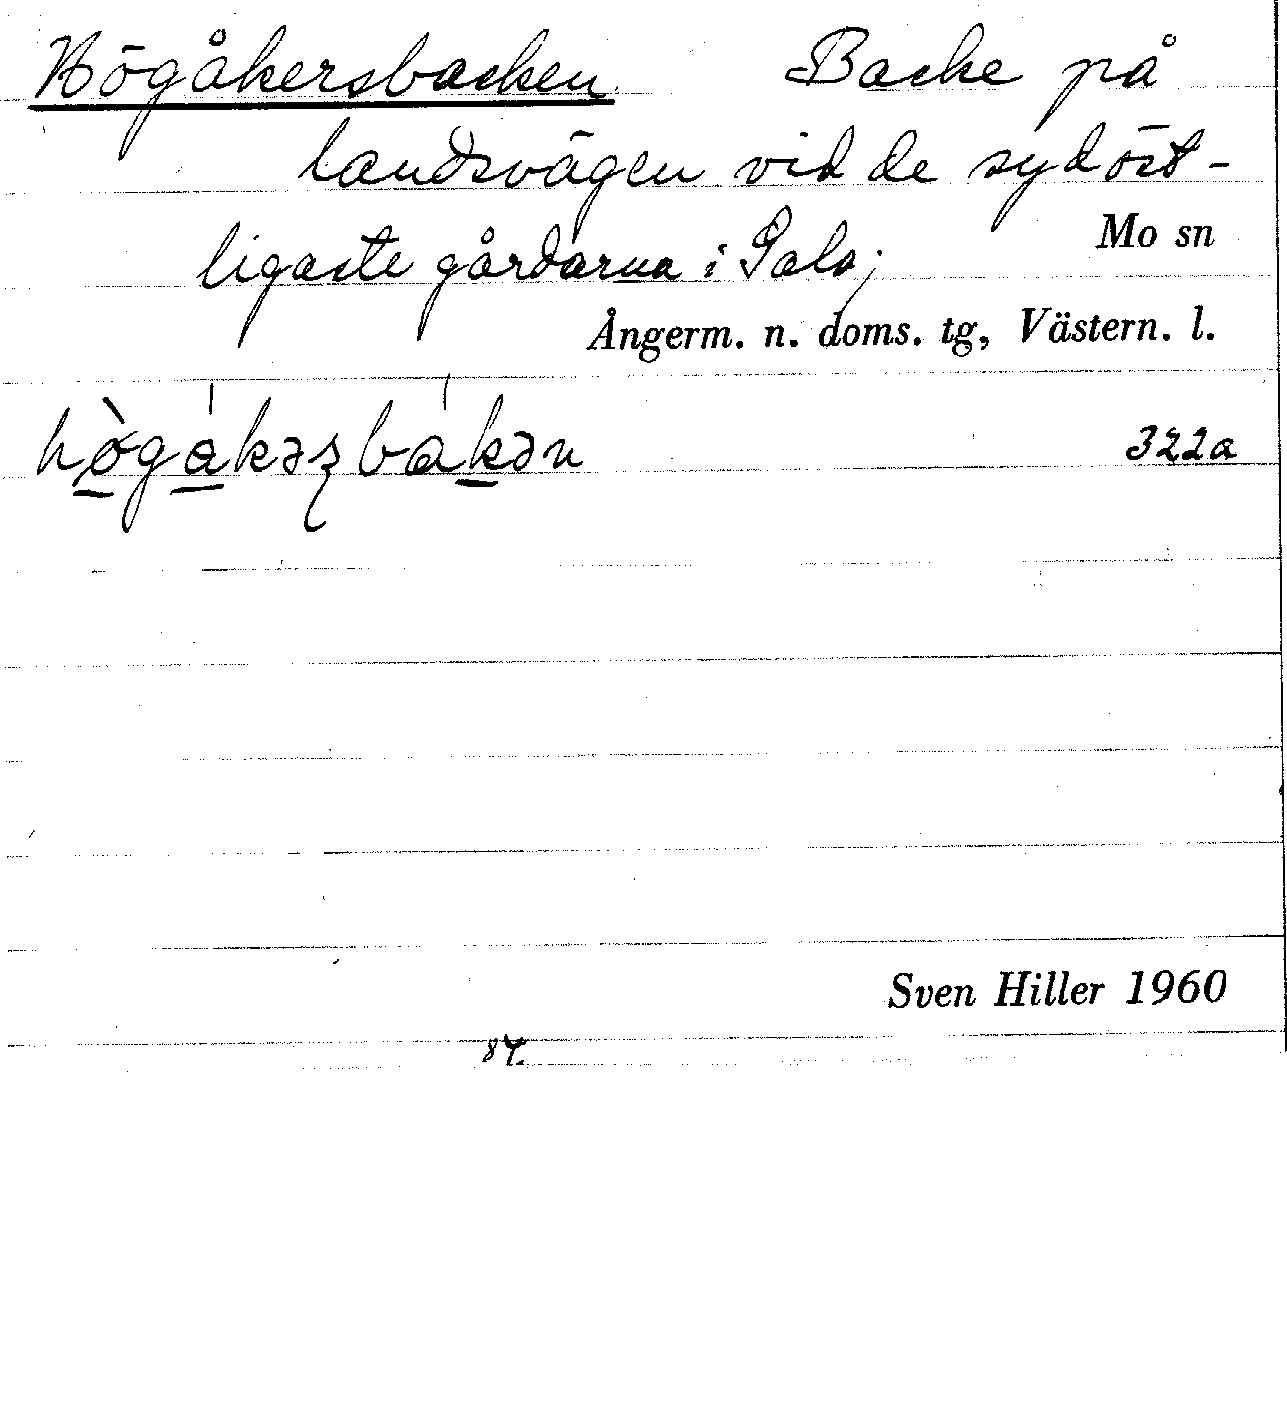 Högåkersbacken Backe på
landsvägen vid de sydöst-
ligaste gårdarna i Gala;
Mo sn
Ångerm. n. doms. tg, Västern. l.
322a
Sven Hiller 1960
84.